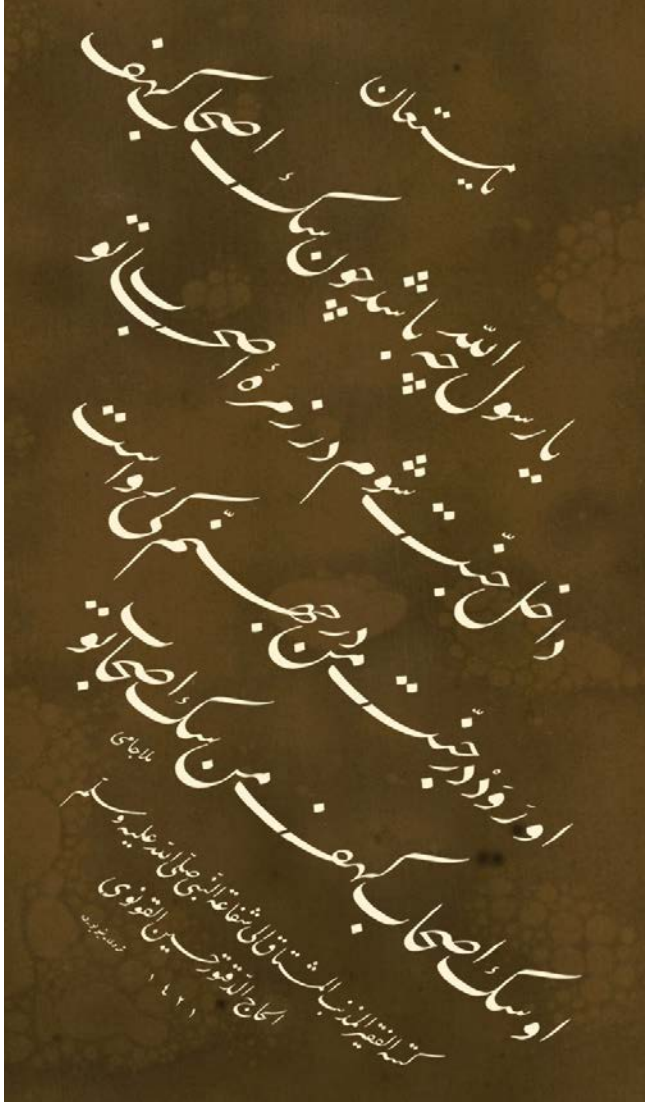 یا مستعان
یا رسول الله چه باشد چون سگ اصحاب کهف
داخل جنّت شوم در زمرهٔ اصحاب تو
او رَوَدْ در جنّت من در جهنّم کی رواست
او سگ اصحاب کهف من سگ اصحاب تو
ملا جامی
كتبه الفقير المذنب المشتاق الى شفاعة النبى صلى الله عليه وسلم
الحاج الدقتور حسين القونوى
١٤٢١